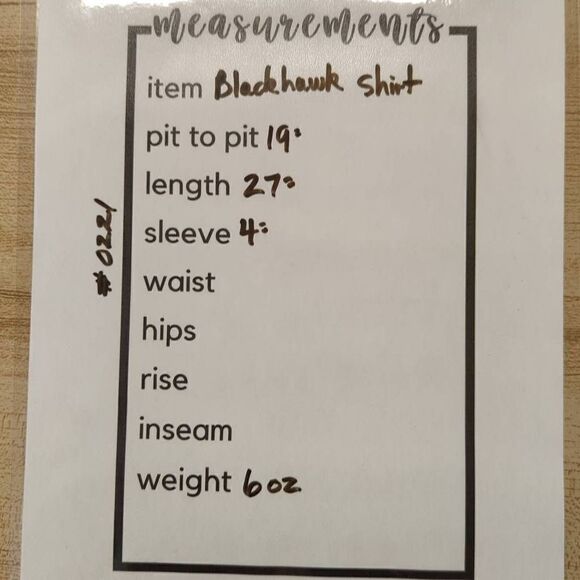 measurements
item Blackhawk Shirt
pit to pit 19"
length 27"
sleeve 4"
waist
hips
rise
inseam
weight 6oz
#0221